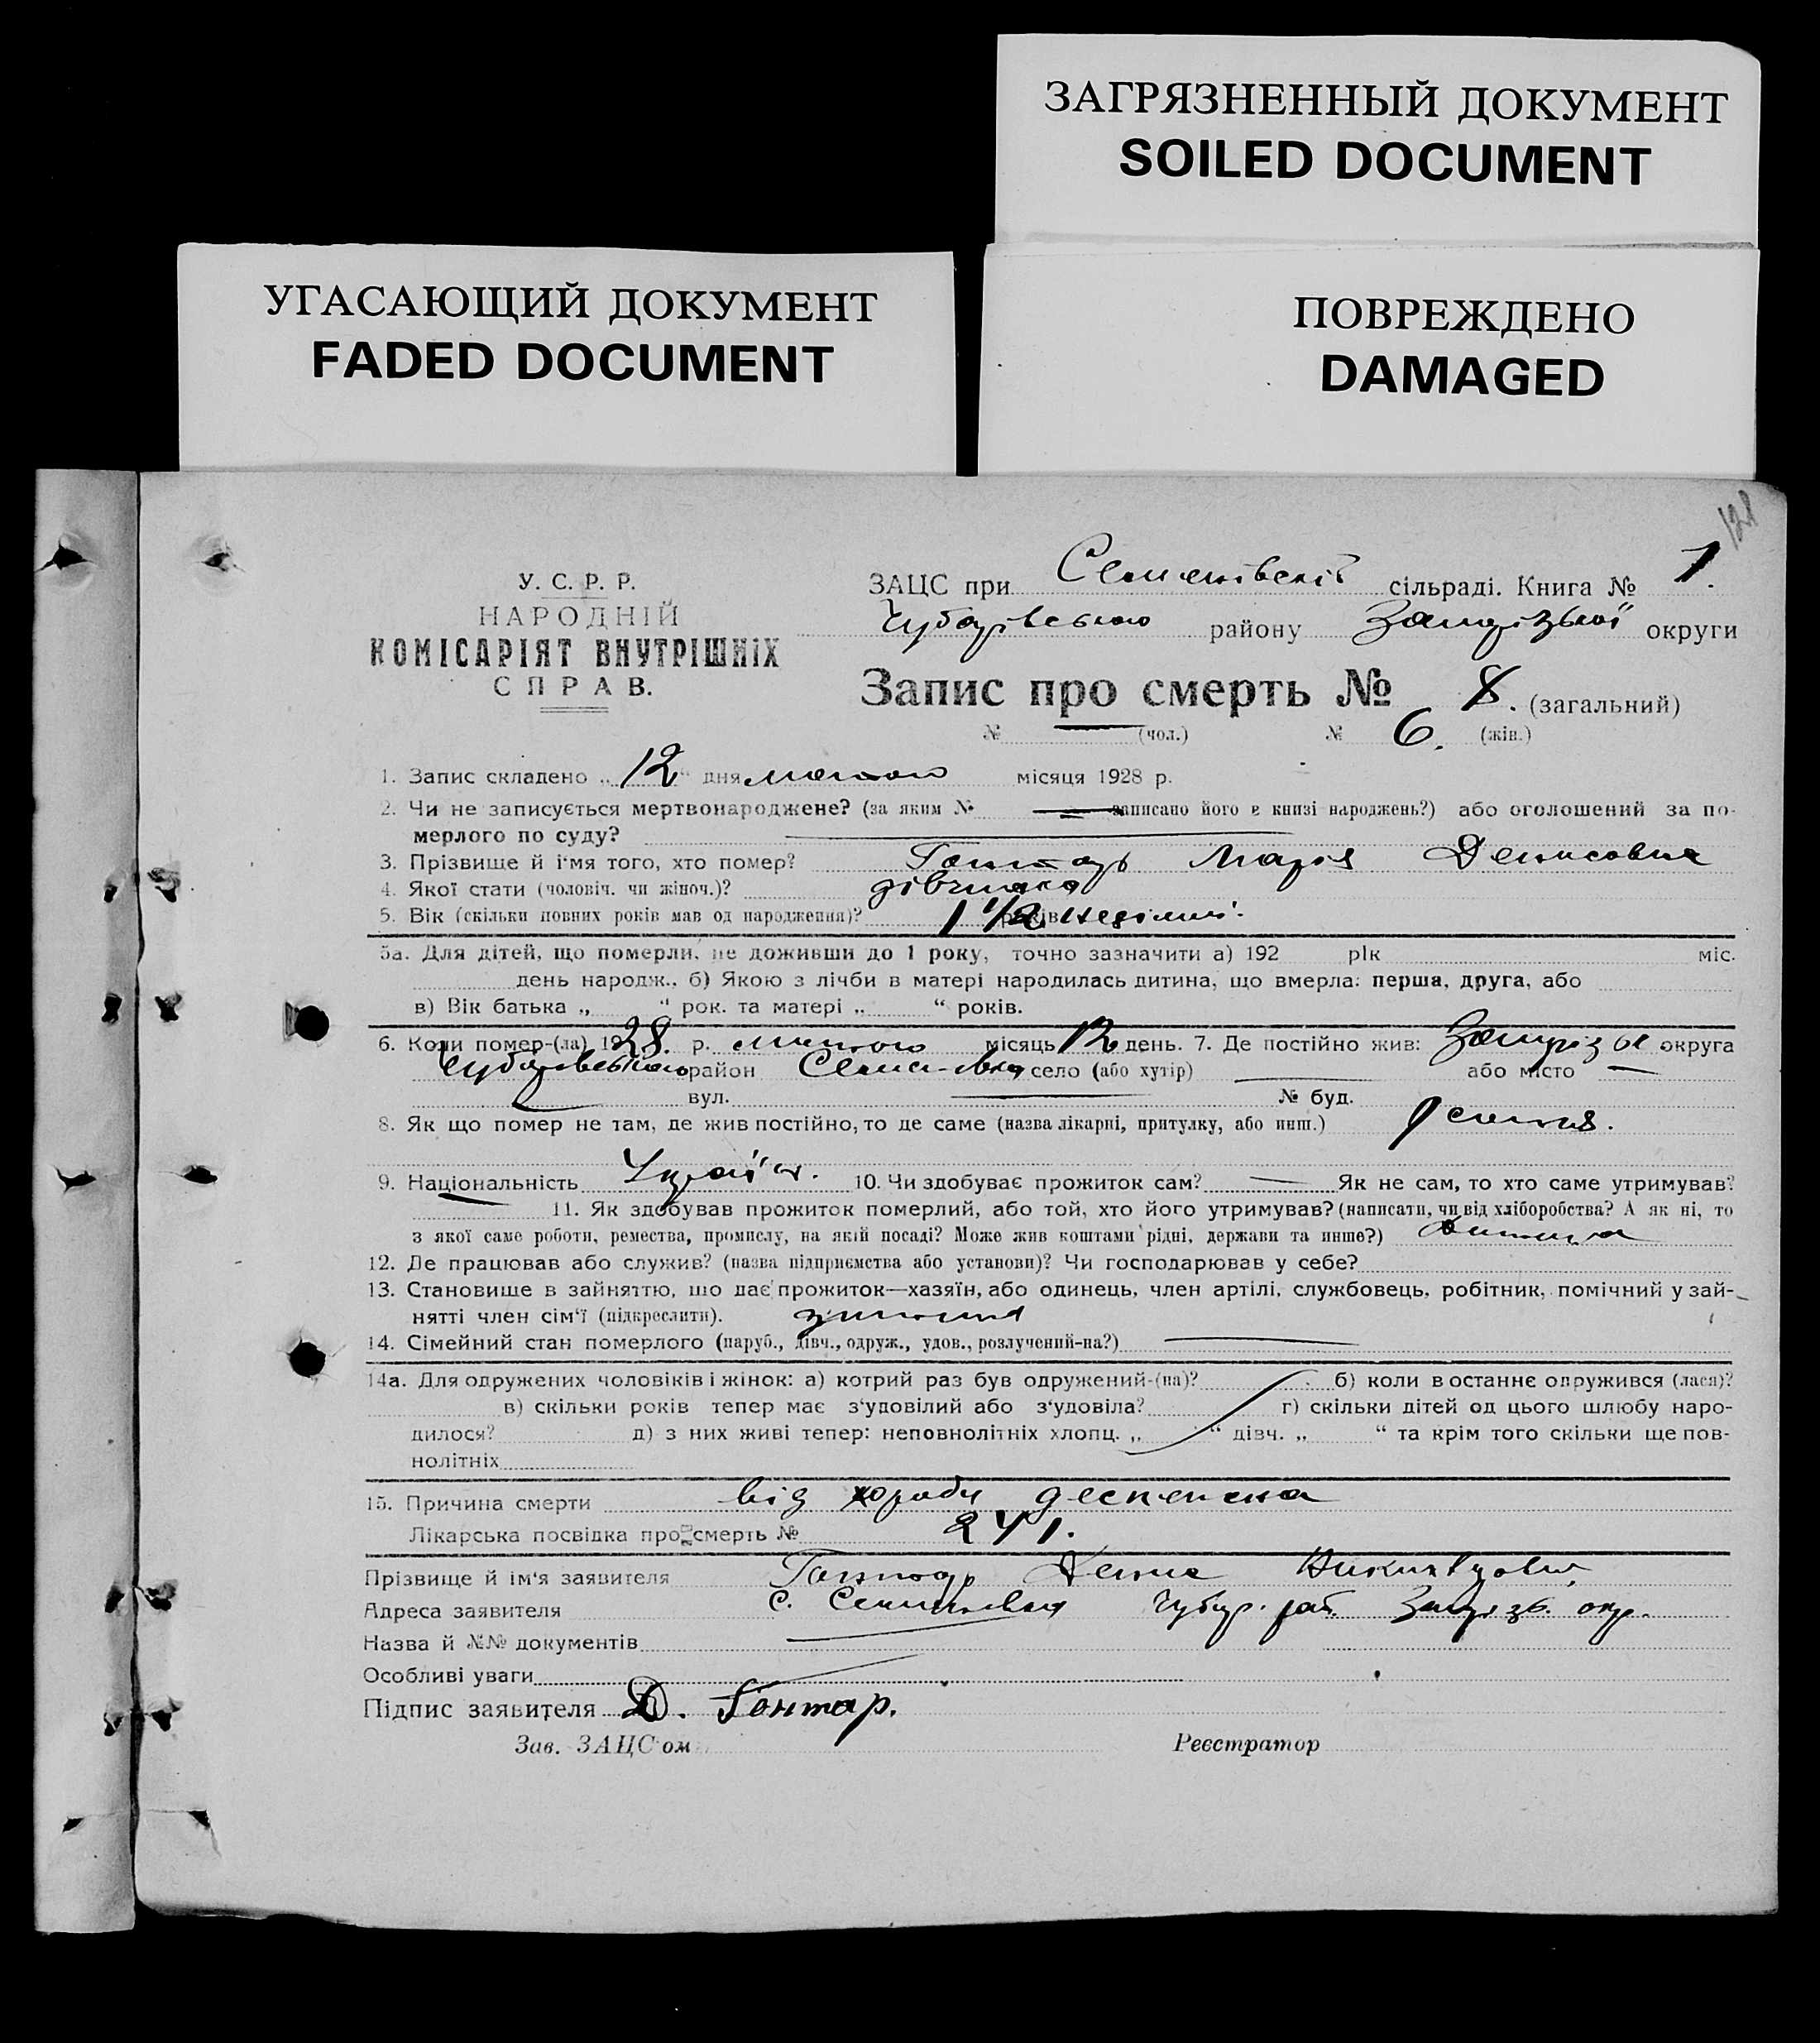 ЗАГРЯЗНЕННЫЙ ДОКУМЕНТ
SOILED DOCUMENT
УГАСАЮЩИЙ ДОКУМЕНТ
FADED DOCUMENT
ПОВРЕЖДЕНО
DAMAGED
121
У. С. Р. Р.
НАРОДНІЙ
КОМІСАРІЯТ ВНУТРІШНІХ
СПРАВ.
ЗАЦС при Семенівській сільраді. Книга № 1.
Чубарівського району Запорізької округи
Запис про смерть № 8. (загальний)
№ — (чол.) № 6. (жін.)
1. Запис складено „ 12 “ дня лютого місяця 1928 р.
2. Чи не записується мертвонароджене? (за яким № — записано його в книзі народжень?) або оголошений за по-
мерлого по суду? —
3. Прізвище й і'мя того, хто помер? Гонтарь Марія Денисовна
4. Якої стати (чоловіч. чи жіноч.)? дівчинка
5. Вік (скільки повних років мав од народження)? 1 1/2 років неділі.
5а. Для дітей, що померли, не доживши до 1 року, точно зазначити а) 192 рік міс.
день народж., б) Якою з лічби в матері народилась дитина, що вмерла: перша, друга, або
в) Вік батька „ “ рок. та матері „ “ років.
6. Коли помер-(ла) 1928. р. лютого місяць 12 день. 7. Де постійно жив: Запоріз округа
Чубарівського район Семенівка село (або хутір) — або місто —
вул. — № буд.
8. Як що помер не там, де жив постійно, то де саме (назва лікарні, притулку, або инш.)
9. Національність Україн. 10. Чи здобуває прожиток сам? — Як не сам, то хто саме утримував?
— 11. Як здобував прожиток померлий, або той, хто його утримував? (написати, чи від хліборобства? А як ні, то
з якої саме роботи, ремества, промислу, на якій посаді? Може жив коштами рідні, держави та инше?) Дитина
12. Де працював або служив? (назва підприємства або установи)? Чи господарював у себе?
13. Становище в зайняттю, що дає прожиток—хазяїн, або одинець, член артілі, службовець, робітник, помічний у зай-
нятті член сім'ї (підкреслити).
14. Сімейний стан померлого (паруб., дівч., одруж., удов., розлучений-на?) —
14а. Для одружених чоловіків і жінок: а) котрий раз був одружений-(на)? б) коли востаннє одружився (лася)?
в) скільки років тепер має з'удовілий або з'удовіла? г) скільки дітей од цього шлюбу наро-
дилося? д) з них живі тепер: неповнолітніх хлопц. „ “ дівч. „ “ та крім того скільки ще пов-
нолітніх
15. Причина смерти від хороби
Лікарська посвідка про смерть № 241.
Прізвище й ім'я заявителя Гонтарь Денис
Адреса заявителя с. Семенівка Чубар. рай. Запоріз. окр.
Назва й №№ документів —
Особливі уваги —
Підпис заявителя Д. Гонтар.
Зав. ЗАЦС'ом Реєстратор